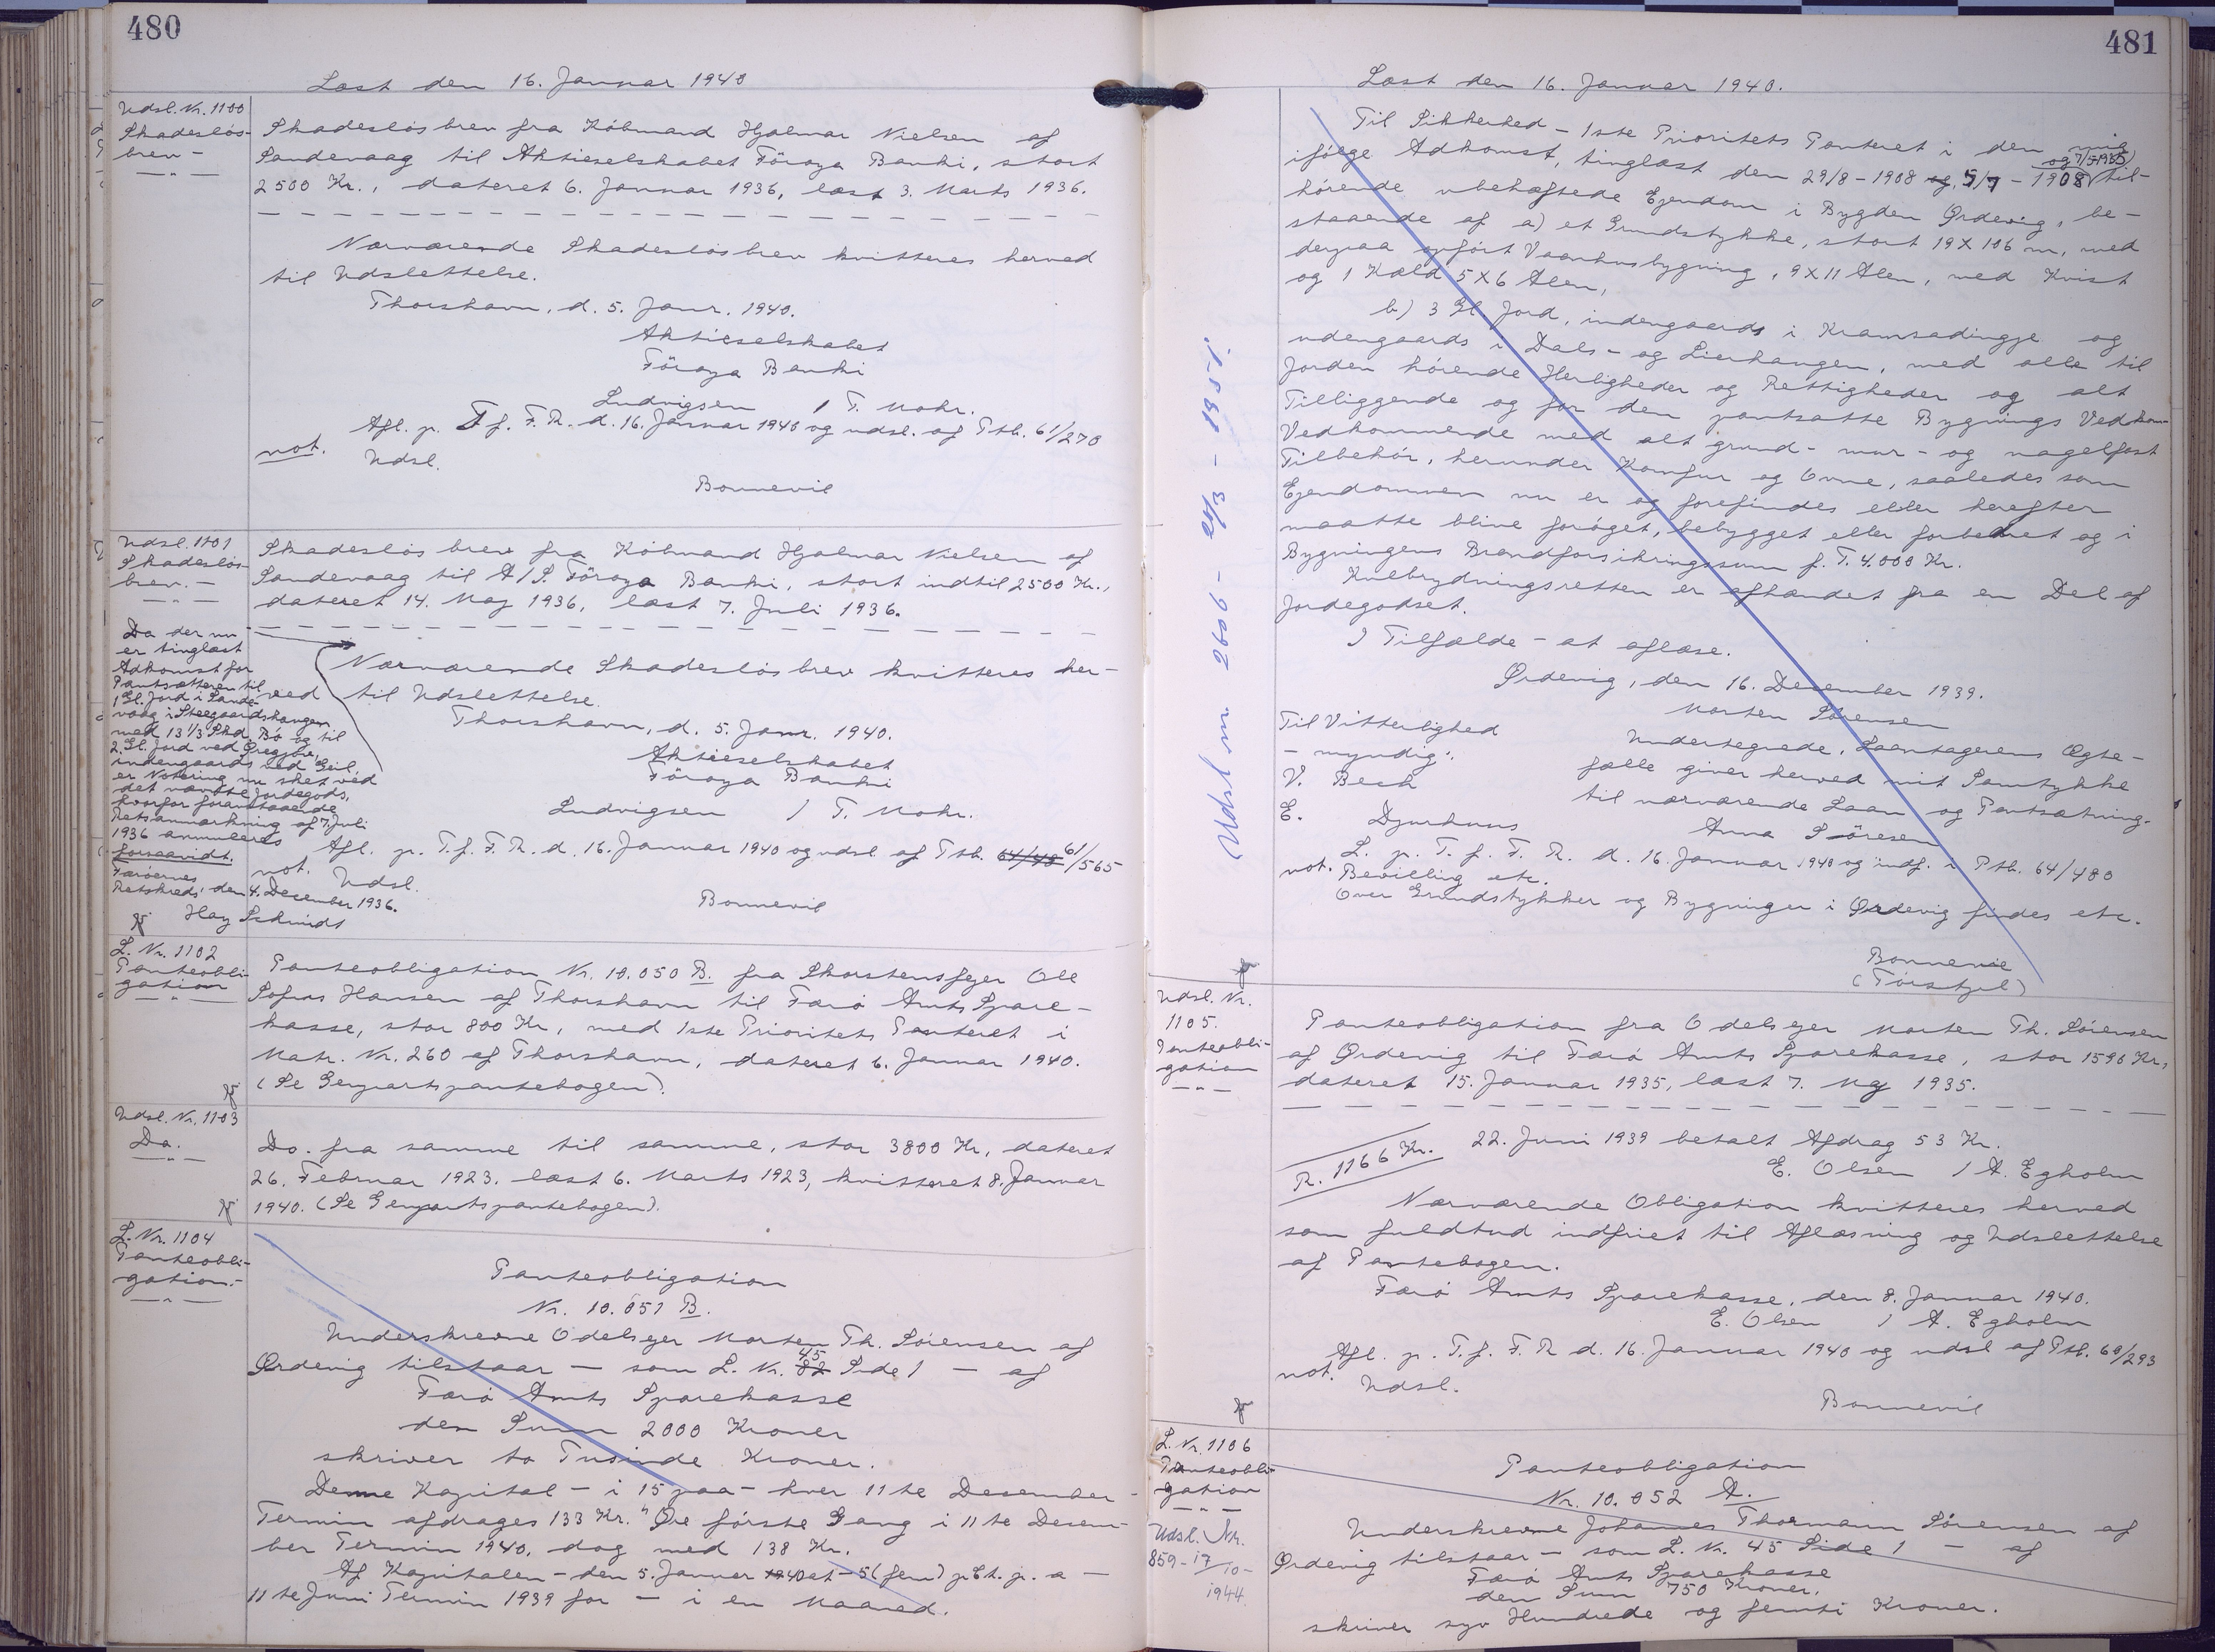 480
Læst den 16. Januar 1940
Udsl. Nr. 1100
Skadesløs-
brev -
Skadesløsbrev fra Købmand Hjalmar Nielsen af
Sandevaag til Aktieselskabet Föroya Banki, stort
2500 Kr., dateret 6. Januar 1936, læst 3. Marts 1936.
Nærværende Skadesløsbrev kvitteres herved
til Udslettelse.
Thorshavn, d. 5. Janr. 1940.
Aktieselskabet
Föroya Banki
Ludvigsen / T. Mohr.
Afl. p. T. f. F. R. d. 16. Januar 1940 og udsl. af Ptb. 61/270
not. Udsl.
Bonnevie
Udsl. 1101
Skadesløs-
brev. -
Skadesløsbrev fra Købmand Hjalmar Nielsen af
Sandevaag til A/S. Föroya Banki, stort indtil 2500 Kr.,
dateret 14. Maj 1936, læst 7. Juli 1936.
Da der nu
er tinglæst
Adkomst for
Pantsætteren til
1 Gl. Jord i Sande-
vaag i Steegaardshaugen
med 13 1/3 Skd. Bø og til
2. Gl. Jord ved
indengaards ved
er Notering nu sket ved
det nævnte Jordegods,
hvorfor foranstaaende
Retsanmærkning af 7 Juli
1936 annulleres
forsaavidt.
Færøernes
Retskreds, den 4. December 1936.
Hay Schmidt
Nærværende Skadesløsbrev kvitteres her-
ved til Udslettelse.
Thorshavn, d. 5. Janr. 1940.
Aktieselskabet
Föroya Banki
Ludvigsen / T. Mohr.
Afl. p. T. f. F. R. d. 16. Januar 1940 og udsl. af Ptb. 64/48 61/565
not. Udsl.
Bonnevie
L. Nr. 1102
Panteobli-
gation
Panteobligation Nr. 10.050 B. fra Skorstensfejer Ole
Sofus Hansen af Thorshavn til Færø Amts Spare-
kasse, stor 800 Kr, med 1ste Prioritets Panteret i
Matr. Nr. 260 af Thorshavn, dateret 6. Januar 1940.
(Se Genpartspantebogen).
Udsl. Nr. 1103
Do.
Do. fra samme til samme, stor 3800 Kr, dateret
26. Februar 1923. læst 6. Marts 1923, kvitteret 8. Januar
1940. (Se Genpartspantebogen).
L. Nr. 1104
Panteobli-
gation. -
Panteobligation
Nr. 10.051 B.
Underskrevne Odelsejer Morten Th. Sørensen af
Ørdevig tilstaar - som L. Nr. 82 45 Side 1 - af
Færø Amts Sparekasse
den Sum 2000 Kroner
skriver to Tusinde Kroner.
Denne Kapital - i 15 paa - hver 11te December -
Termin afdrages 133 Kr. " Øre første Gang i 11te Decem-
ber Termin 1940, dog med 138 Kr.
Af Kapitalen - den 5. Januar 1940 at - 5 (fem) pCt. p. a -
11te Juni Termin 1939 for - i en Maaned.
481
Læst den 16. Januar 1940.
Til Sikkerhed - 1ste Prioritets Panteret i den mig
ifølge Adkomst, tinglæst den 29/8 - 1908 og 5/7 - 1908 og 7/5 1935) til-
hørende ubehæftede Ejendom i Bygden Ørdevig, be-
staaende af a) et Grundstykke, stort 19 X 106 m, med
derpaa opført Vaanhusbygning, 9 X 11 Alen, med Kvist
og 1 Kæld 5 X 6 Alen,
b) 3 Gl Jord, indengaards i Kramsadingje og
udengaards i Dals- og Lierhaugen, med alle til
Jorden hørende Herligheder og Rettigheder og alt
Tilliggende og for den pantsatte Bygnings Vedkom-
Vedkommende med alt grund- mur- og nagelfast
Tilbehør, herunder Komfur og Ovne, saaledes som
Ejendommen nu er og forefindes eller herefter
maatte blive forøget, bebygget eller forbedret og i
Bygningens Brandforsikringssum f. T. 4.000 Kr.
Kulbrydningsretten er afhændet fra en Del af
Jordegodset.
I Tilfælde - at aflæse.
Ørdevig, den 16. December 1939.
Morten Sørensen
Til Vitterlighed
- myndig:
V. Bech
E. Djurhuus
Undertegnede, Laantagerens Ægte-
fælle giver herved mit Samtykke
til nærværende Laan og Pantsætning.
Anna Sörensen
L. p. T. f. F. R. d. 16. Januar 1940 og indf. i Ptb. 64/480
not. Bevilling etc.
Over Grundstykker og Bygninger i Ørdevig findes etc.
Bonnevie
Udsl nr. 2606 - 24/3 - 1951.
Udsl. Nr.
1105.
Panteobli-
gation
Panteobligation fra Odelsejer Morten Th. Sørensen
af Ørdevig til Færø Amts Sparekasse, stor 1590 Kr,
dateret 15. Januar 1935, læst 7. Maj 1935.
R. 1166 Kr.
22. Juni 1939 betalt Afdrag 53 Kr.
E. Olsen / A. Egholm
Nærværende Obligation kvitteres herved
som fuldtud indfriet til Aflæsning og Udslettelse
af Pantebogen.
Færø Amts Sparekasse, den 8. Januar 1940.
E. Olsen / A. Egholm
Afl. p. T. f. F. R d. 16. Januar 1940 og udsl af Ptb. 60/293
not. Udsl.
Bonnevie
L. Nr. 1106
Panteobli-
gation
Udsl. Nr.
859 - 17/10 -
1944.
Panteobligation
Nr. 10.052 A.
Underskrevne Johannes Thormann Sørensen af
Ørdevig tilstaar - som L. Nr. 45 Side 1 - af
Færø Amts Sparekasse
den Sum 750 Kroner.
skriver syv Hundrede og femti Kroner.